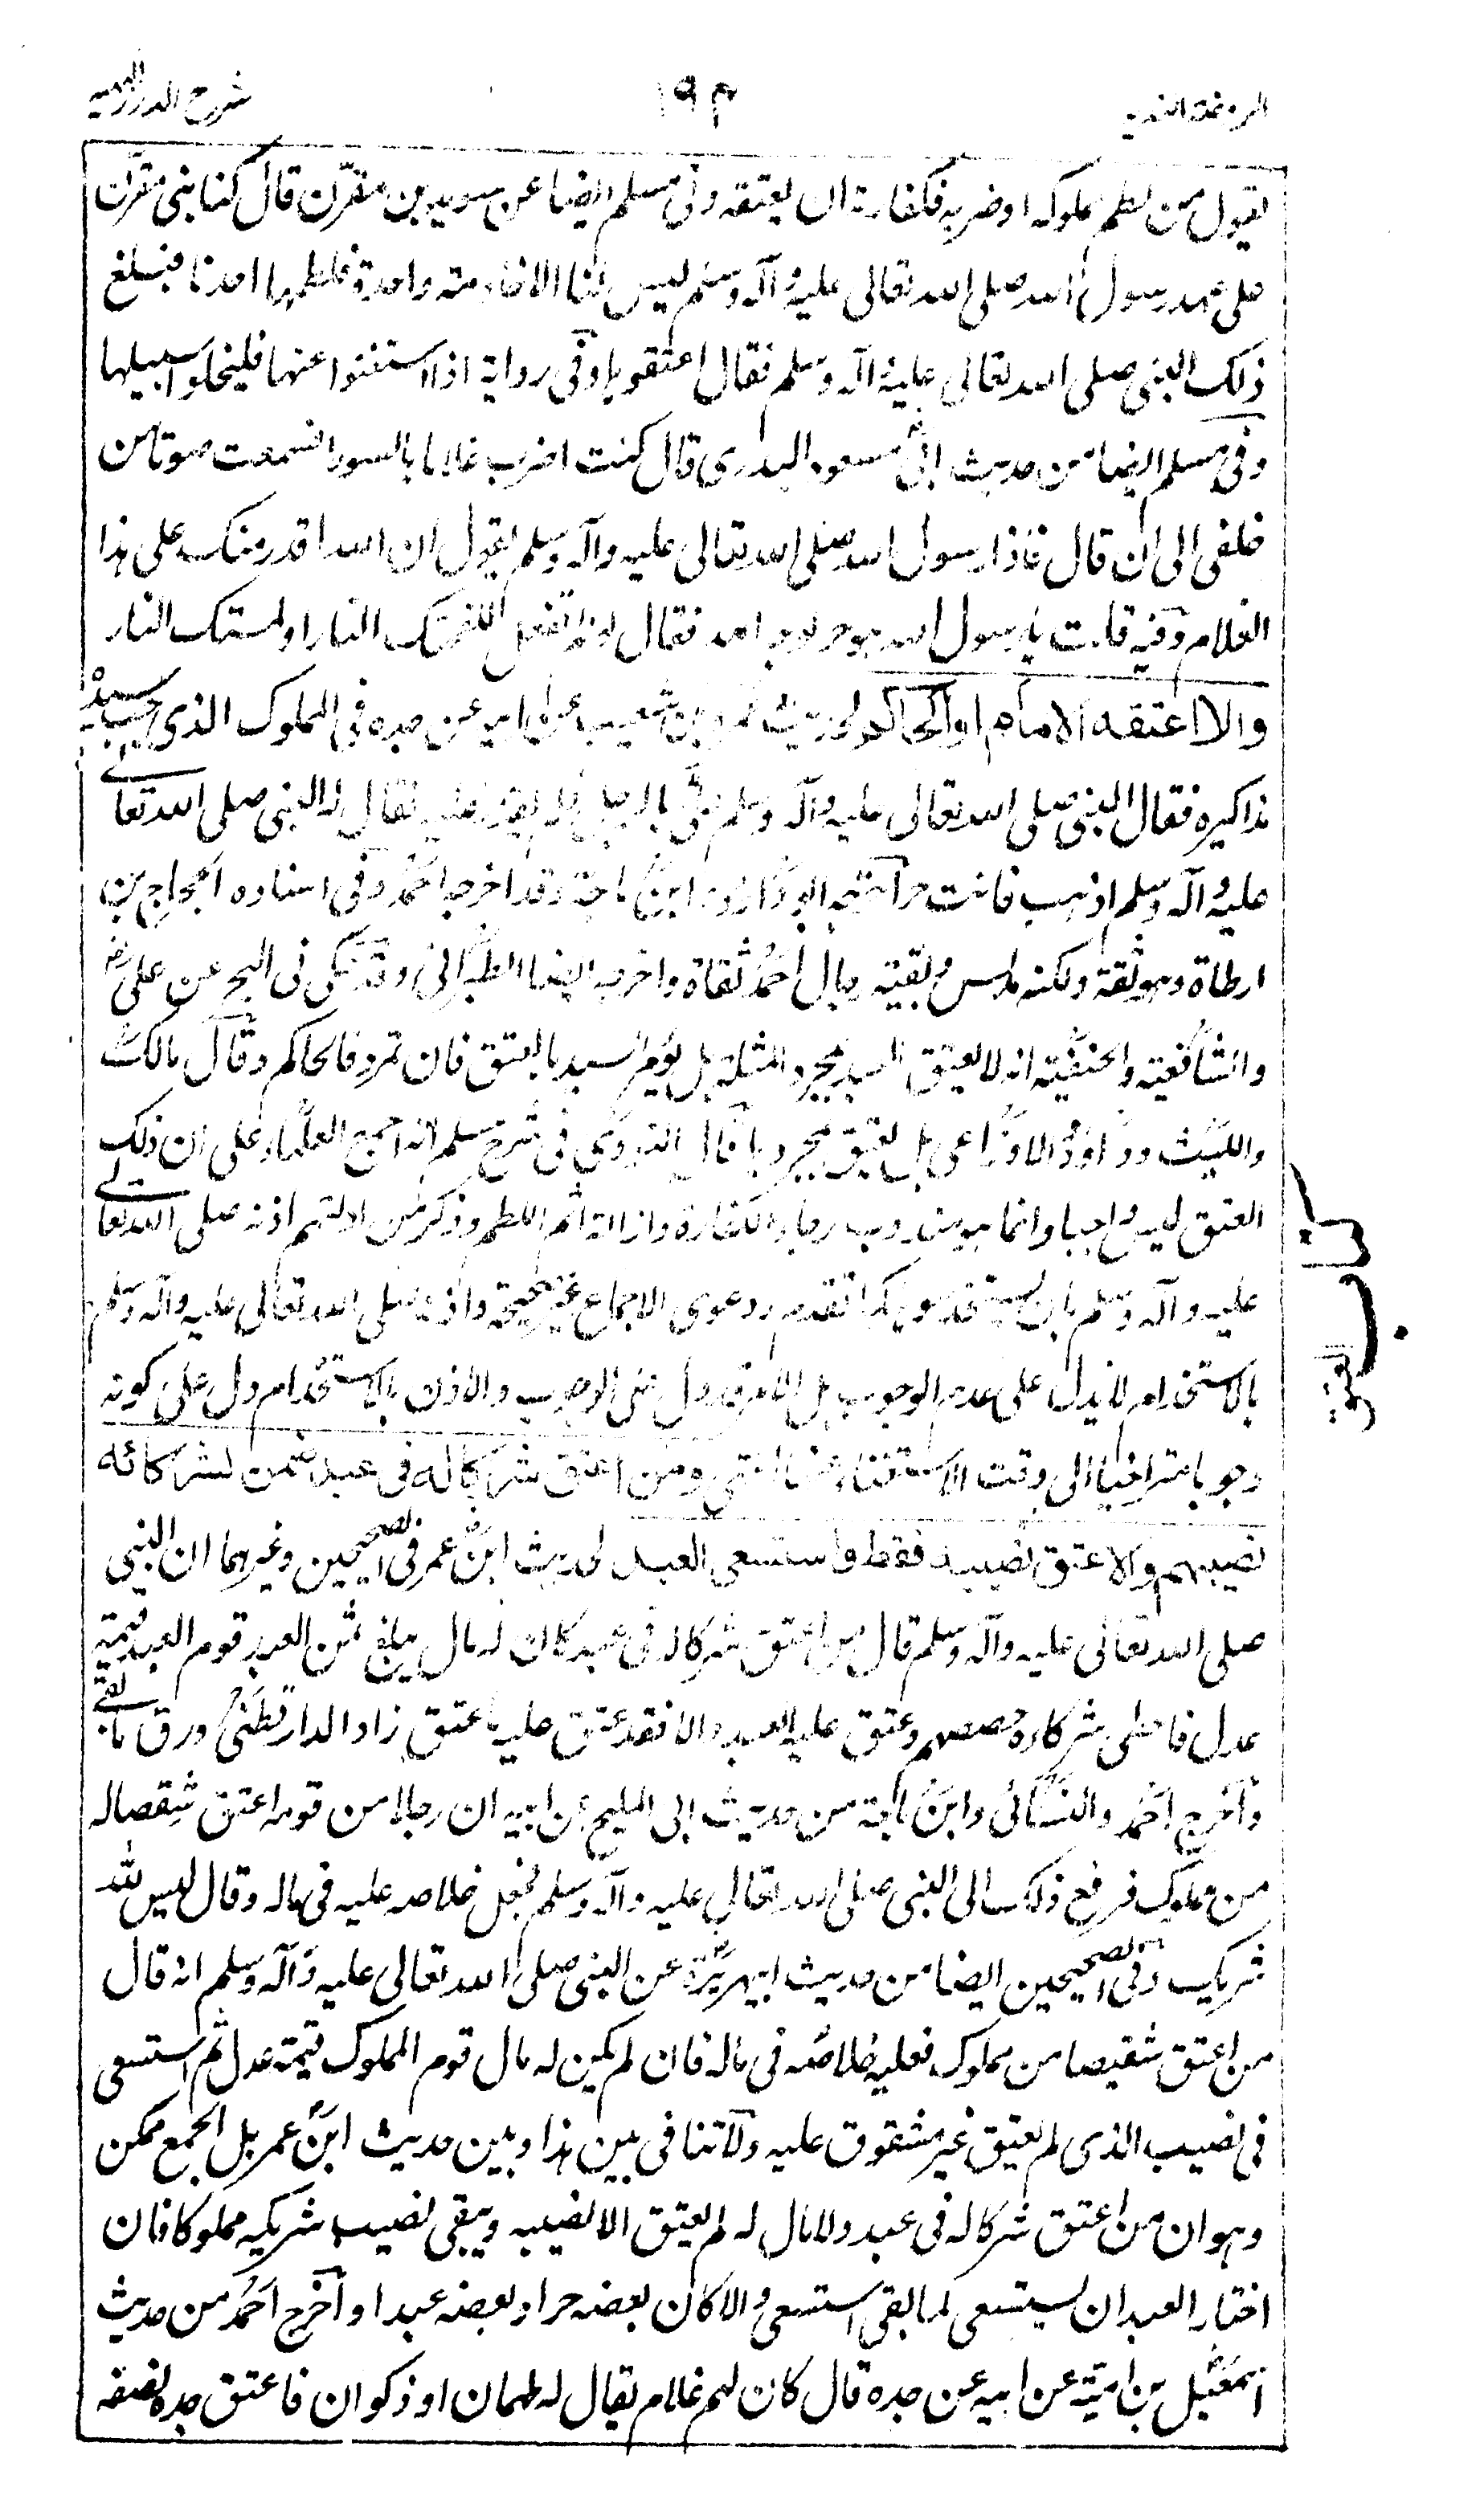 الروضة الندية
١٩٣
شرح الدرر البهية
يقول من لطم مملوكه او ضربه فكفارته ان يعتقه وفى مسلم ايضا عن سويد بن مقرن قال كنا بنى مقرن
على عهد رسول الله صلى الله تعالى عليه وآله وسلم ليس لنا الا خادمة واحدة فلطمها احدنا فبلغ
ذلك النبى صلى الله تعالى عليه وآله وسلم فقال اعتقوها وفى رواية اذا استغنوا عنها فليخلوا سبيلها
وفى مسلم ايضا من حديث ابى مسعود البدرى قال كنت اضرب غلاما بالسوط فسمعت صوتا من
خلفى الى ان قال فاذا رسول الله صلى الله تعالى عليه وآله وسلم يقول ان الله اقدر منك على هذا
الغلام وفيه قلت يا رسول الله هو حر لوجه الله فقال لو لم تفعل للفحتك النار او لمستك النار
والا اعتقه الامام او الحاكم لحديث عمرو بن شعيب عن ابيه عن جده فى المملوك الذى جب سيده
مذاكيره فقال النبى صلى الله تعالى عليه وآله وسلم علىّ بالرجل فلم يقدر عليه فقال له النبى صلى الله تعالى
عليه وآله وسلم اذهب فانت حر اخرجه ابو داؤد وابن ماجة وقد اخرجه احمد وفى اسناده الحجاج بن
ارطاة وهو ثقة ولكنه مدلس وبقية رجال احمد ثقاة واخرجه ايضا الطبرانى وقد حكى فى البحر عن على رض
والشافعية والحنفية انه لا يعتق العبد بمجرد المثلة بل يؤمر السيد بالعتق فان تمرد فالحاكم وقال مالك
والليث وداؤد والاوزاعى بل يعتق بمجردها قال النووى فى شرح مسلم انه اجمع العلماء على ان ذلك
العتق ليس واجبا وانما هو مندوب رجاء الكفارة وازالة اثم اللطم وذكر من ادلتهم اذنه صلى الله تعالى
عليه وآله وسلم بان يستخدموها كما تقدم ودعوى الاجماع غير صحيحة واذنه صلى الله تعالى عليه وآله وسلم
بالاستخدام لا يدل على عدم الوجوب بل الامر قد دل على الوجوب والاذن بالاستخدام دل على كونه
وجوبا متراخيا الى وقت الاستغناء عنها انتهى ومن اعتق شركا له فى عبد ضمن لشركائه
نصيبهم والا عتق نصيبه فقط واستسعى العبد لحديث ابن عمر فى الصحيحين وغيرهما ان النبى
صلى الله تعالى عليه وآله وسلم قال من اعتق شركا له فى عبد كان له مال يبلغ ثمن العبد قوم العبد قيمة
عدل فاعطى شركاءه حصصهم وعتق عليه العبد والا فقد عتق عليه ما عتق زاد الدارقطنى ورق ما بقى
واخرج احمد والنسائى وابن ماجة من حديث ابى المليح عن ابيه ان رجلا من قومه اعتق شقصا له
من مملوك فرفع ذلك الى النبى صلى الله تعالى عليه وآله وسلم فجعل خلاصه عليه فى ماله وقال ليس لله
شريك وفى الصحيحين ايضا من حديث ابيهريرة عن النبى صلى الله تعالى عليه وآله وسلم انه قال
من اعتق شقيصا من مملوك فعليه خلاصه فى ماله فان لم يكن له مال قوم المملوك قيمة عدل ثم استسعى
فى نصيب الذى لم يعتق غير مشقوق عليه ولا تنافى بين هذا وبين حديث ابن عمر بل الجمع ممكن
وهو ان من اعتق شركا له فى عبد ولا مال له لم يعتق الا نصيبه ويبقى نصيب شريكه مملوكا فان
اختار العبد ان يستسعى لما بقى استسعى والا كان بعضه حرا وبعضه عبدا واخرج احمد من حديث
اسمعيل بن امية عن ابيه عن جده قال كان لهم غلام يقال له طهمان او ذكوان فاعتق جده نصفه
كتاب العتق